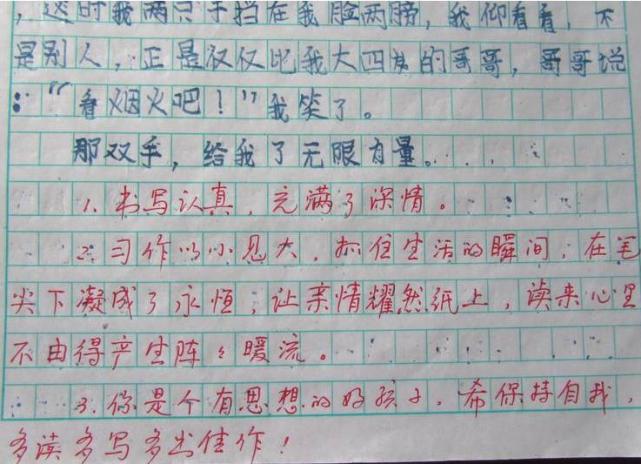 ，这时我两只手挡在我脸两膀，我仰看看，不
是别人，正是仅仅比我大四岁的哥哥，哥哥说
：“看烟火吧！”我笑了。
那双手，给我了无限力量。
1、书写认真，充满了深情。
2、习作以小见大，抓住生活的瞬间，在笔
尖下凝成了永恒，让亲情耀然纸上，读来心里
不由得产生阵々暖流。
3、你是个有思想的好孩子，希保持自我，
多读多写多出佳作！